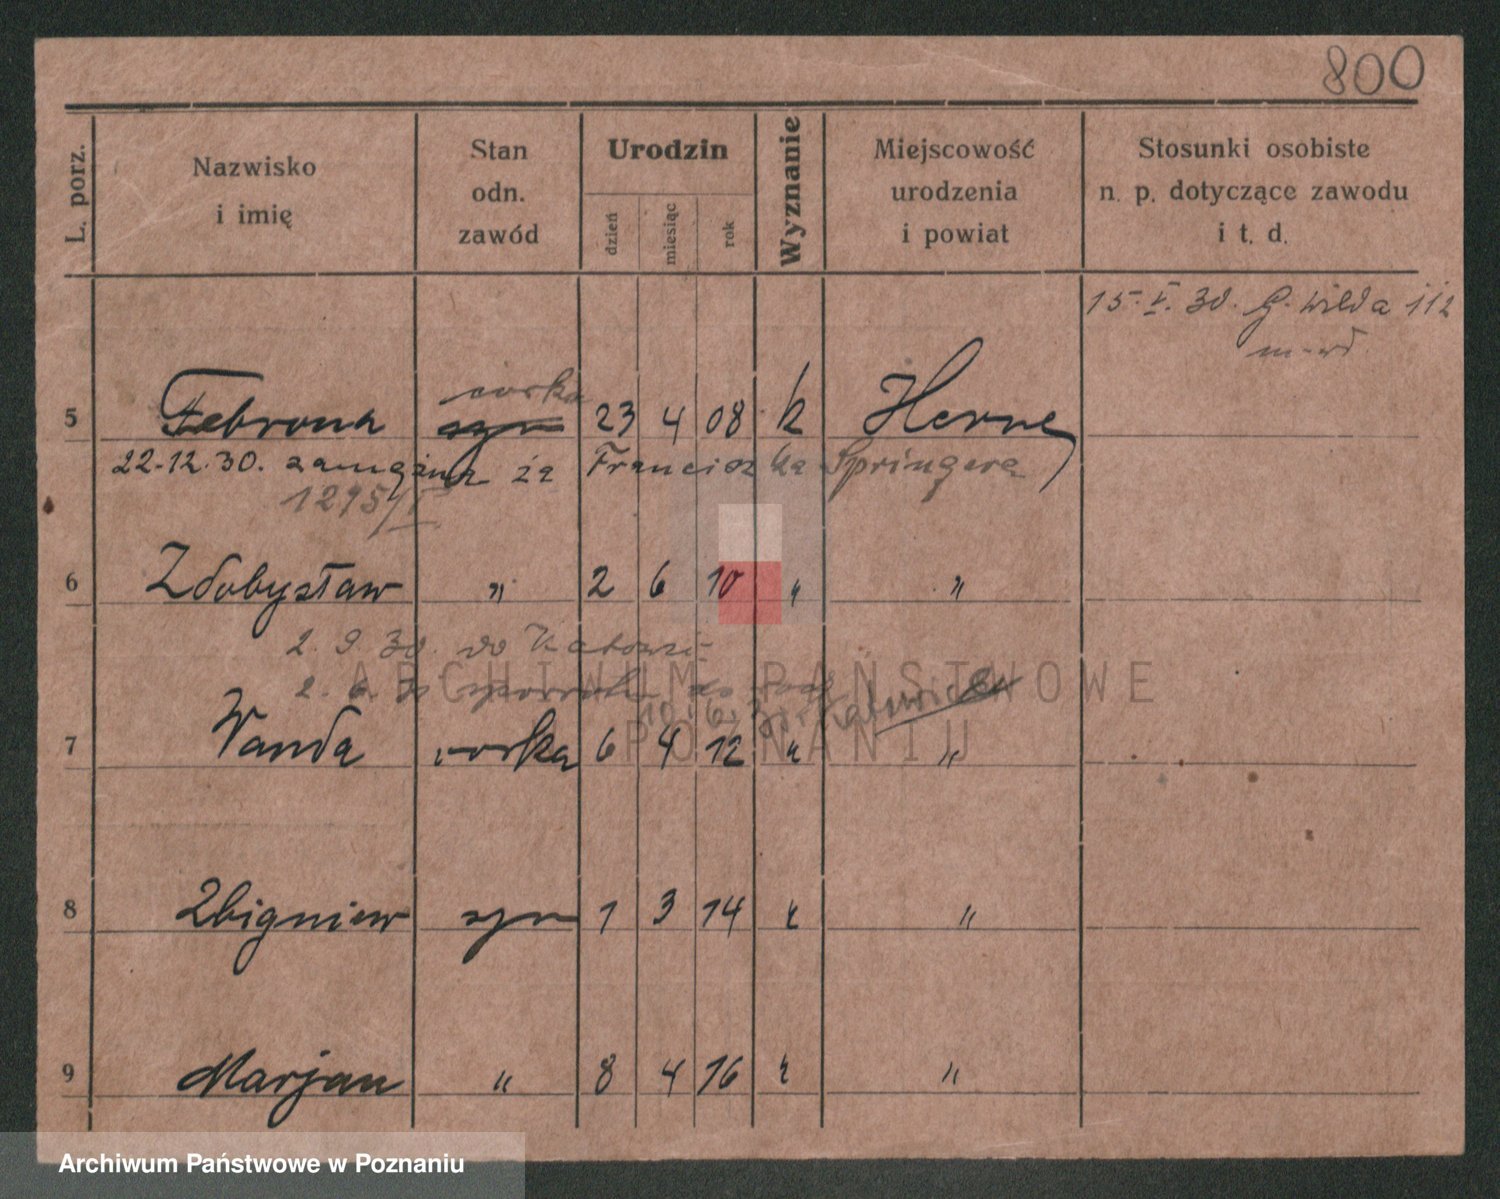 800
L. porz.
Nazwisko
i imię
Stan
odn.
zawód
Urodzin
dzień
miesiąc
rok
Wyznanie
Miejscowość
urodzenia
i powiat
Stosunki osobiste
n. p. dotyczące zawodu
i t. d.
15.V.30. G. Wilda 112
córka
5 Febrona syn 23 4 08 k Herne
22-12.30. zamężna za Franciszka Springera
1295/I
6 Zdobysław " 2 6 10 " "
2. 9. 30. do Katowic
2. 6. 30 do
10.6. Katowice
7 Wanda córka 6 4 12 " "
8 Zbigniew syn 1 3 14 " "
9 Marjan " 8 4 16 " "
ARCHIWUM PAŃSTWOWE
POZNANIU
Archiwum Państwowe w Poznaniu